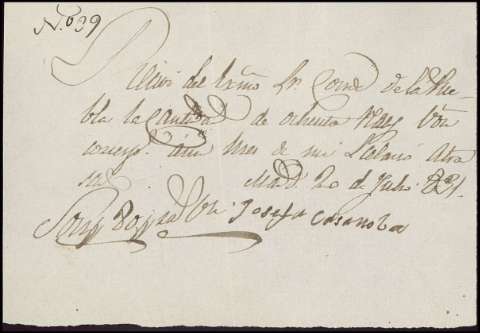 N.º 39
Recivi del Exmo Sr. Conde de la Pue-
bla la cantidad de ochenta rrs Von
un mes de mi Salario atra
Mad. 20 de Julio 821.
Son 80 rrs Von Josefa Casanoba